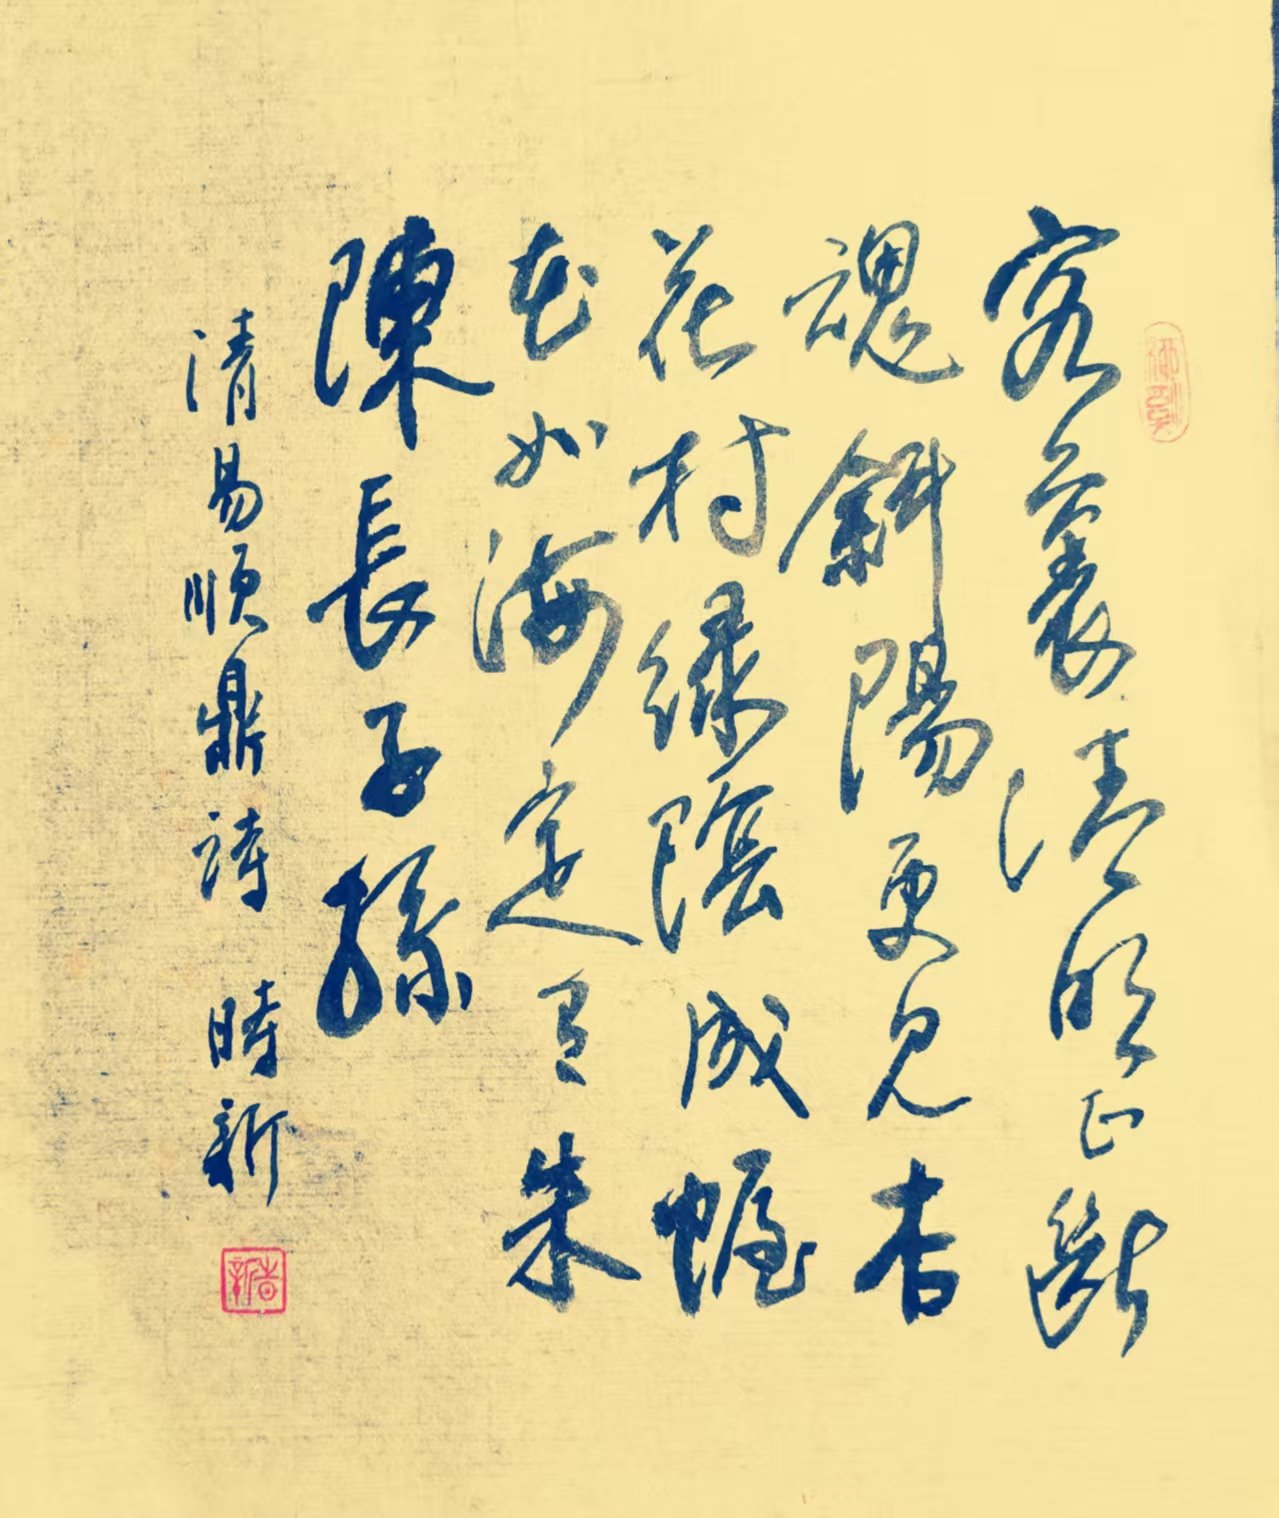 客裏清明正斷
魂斜陽更見杏
花村緑陰成幄
花如海定有朱
陳長子孫
清易順鼎詩 時新
旹新